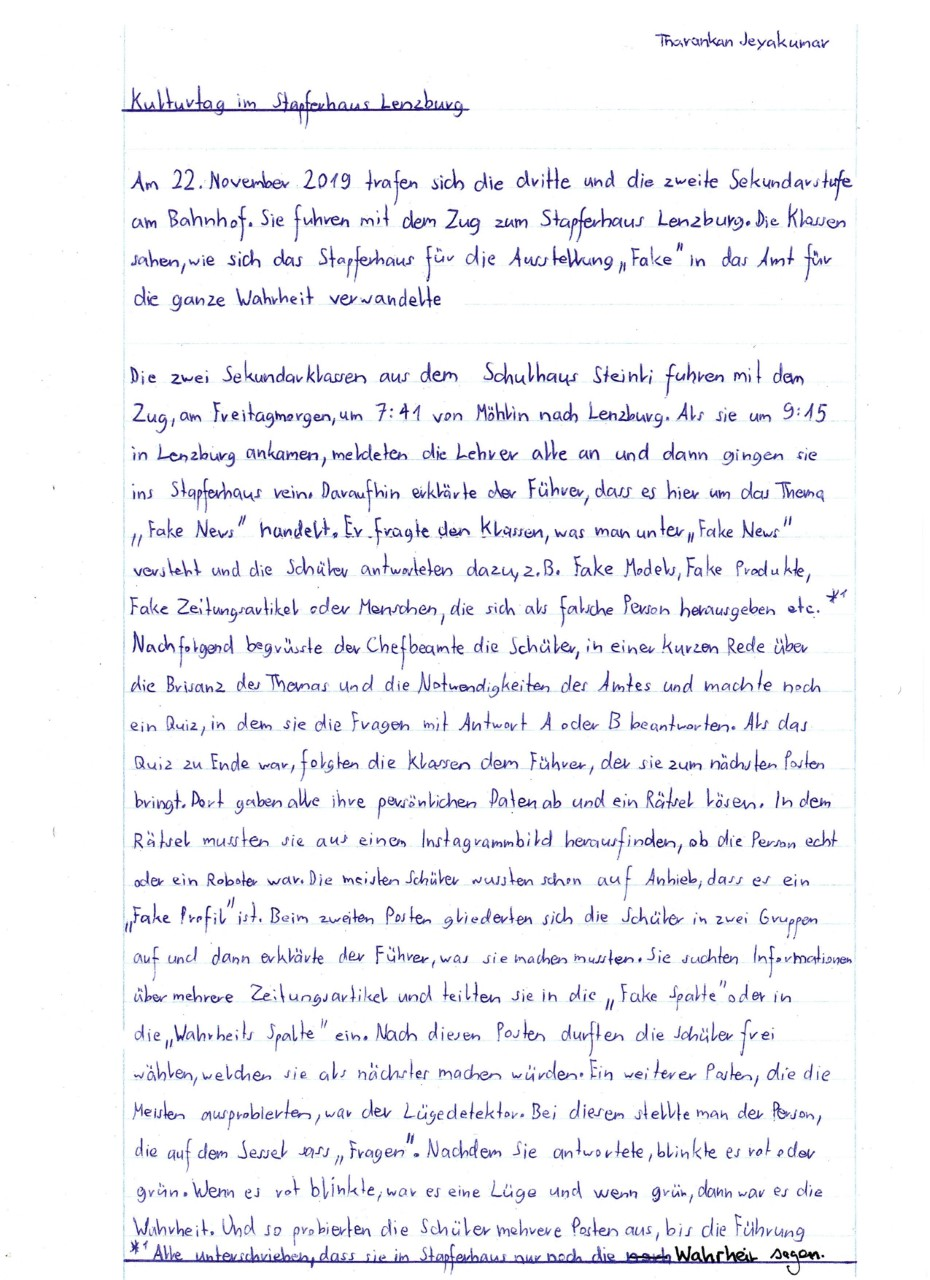 Tharankan Jeyakumar
Kulturtag im Stapferhaus Lenzburg
Am 22. November 2019 trafen sich die dritte und die zweite Sekundarstufe
am Bahnhof. Sie fuhren mit dem Zug zum Stapferhaus Lenzburg. Die Klassen
sahen, wie sich das Stapferhaus für die Ausstellung „Fake" in das Amt für
die ganze Wahrheit verwandelte
Die zwei Sekundarklassen aus dem Schulhaus Steinli fuhren mit dem
Zug, am Freitagmorgen, um 7:41 von Möhlin nach Lenzburg. Als sie um 9:15
in Lenzburg ankamen, meldeten die Lehrer alle an und dann gingen sie
ins Stapferhaus rein. Daraufhin erklärte der Führer, dass es hier um das Thema
„Fake News" handelt. Er fragte den Klassen, was man unter „Fake News"
versteht und die Schüler antworteten dazu, z.B. Fake Models, Fake Produkte,
Fake Zeitungsartikel oder Menschen, die sich als falsche Person herausgeben etc. *1
Nachfolgend begrüsste der Chefbeamte die Schüler, in einer kurzen Rede über
die Brisanz des Themas und die Notwendigkeiten des Amtes und machte noch
ein Quiz, in dem sie die Fragen mit Antwort A oder B beantworten. Als das
Quiz zu Ende war, folgten die Klassen dem Führer, der sie zum nächsten Posten
bringt. Dort gaben alle ihre persönlichen Daten ab und ein Rätsel lösen. In dem
Rätsel mussten sie aus einem Instagrammbild herausfinden, ob die Person echt
oder ein Roboter war. Die meisten Schüler wussten schon auf Anhieb, dass es ein
„Fake Profil" ist. Beim zweiten Posten gliederten sich die Schüler in zwei Gruppen
auf und dann erklärte der Führer, was sie machen mussten. Sie suchten Informationen
über mehrere Zeitungsartikel und teilten sie in die „Fake Spalte" oder in
die „Wahrheits Spalte" ein. Nach diesen Posten durften die Schüler frei
wählen, welchen sie als nächster machen würden. Ein weiterer Posten, die die
Meisten ausprobierten, war der Lügedetektor. Bei diesem stellte man der Person,
die auf dem Sessel sass „Fragen". Nachdem Sie antwortete, blinkte es rot oder
grün. Wenn es rot blinkte, war es eine Lüge und wenn grün, dann war es die
Wahrheit. Und so probierten die Schüler mehrere Posten aus, bis die Führung
*1 Alle unterschrieben, dass sie im Stapferhaus nur noch die Wahrheit sagen.